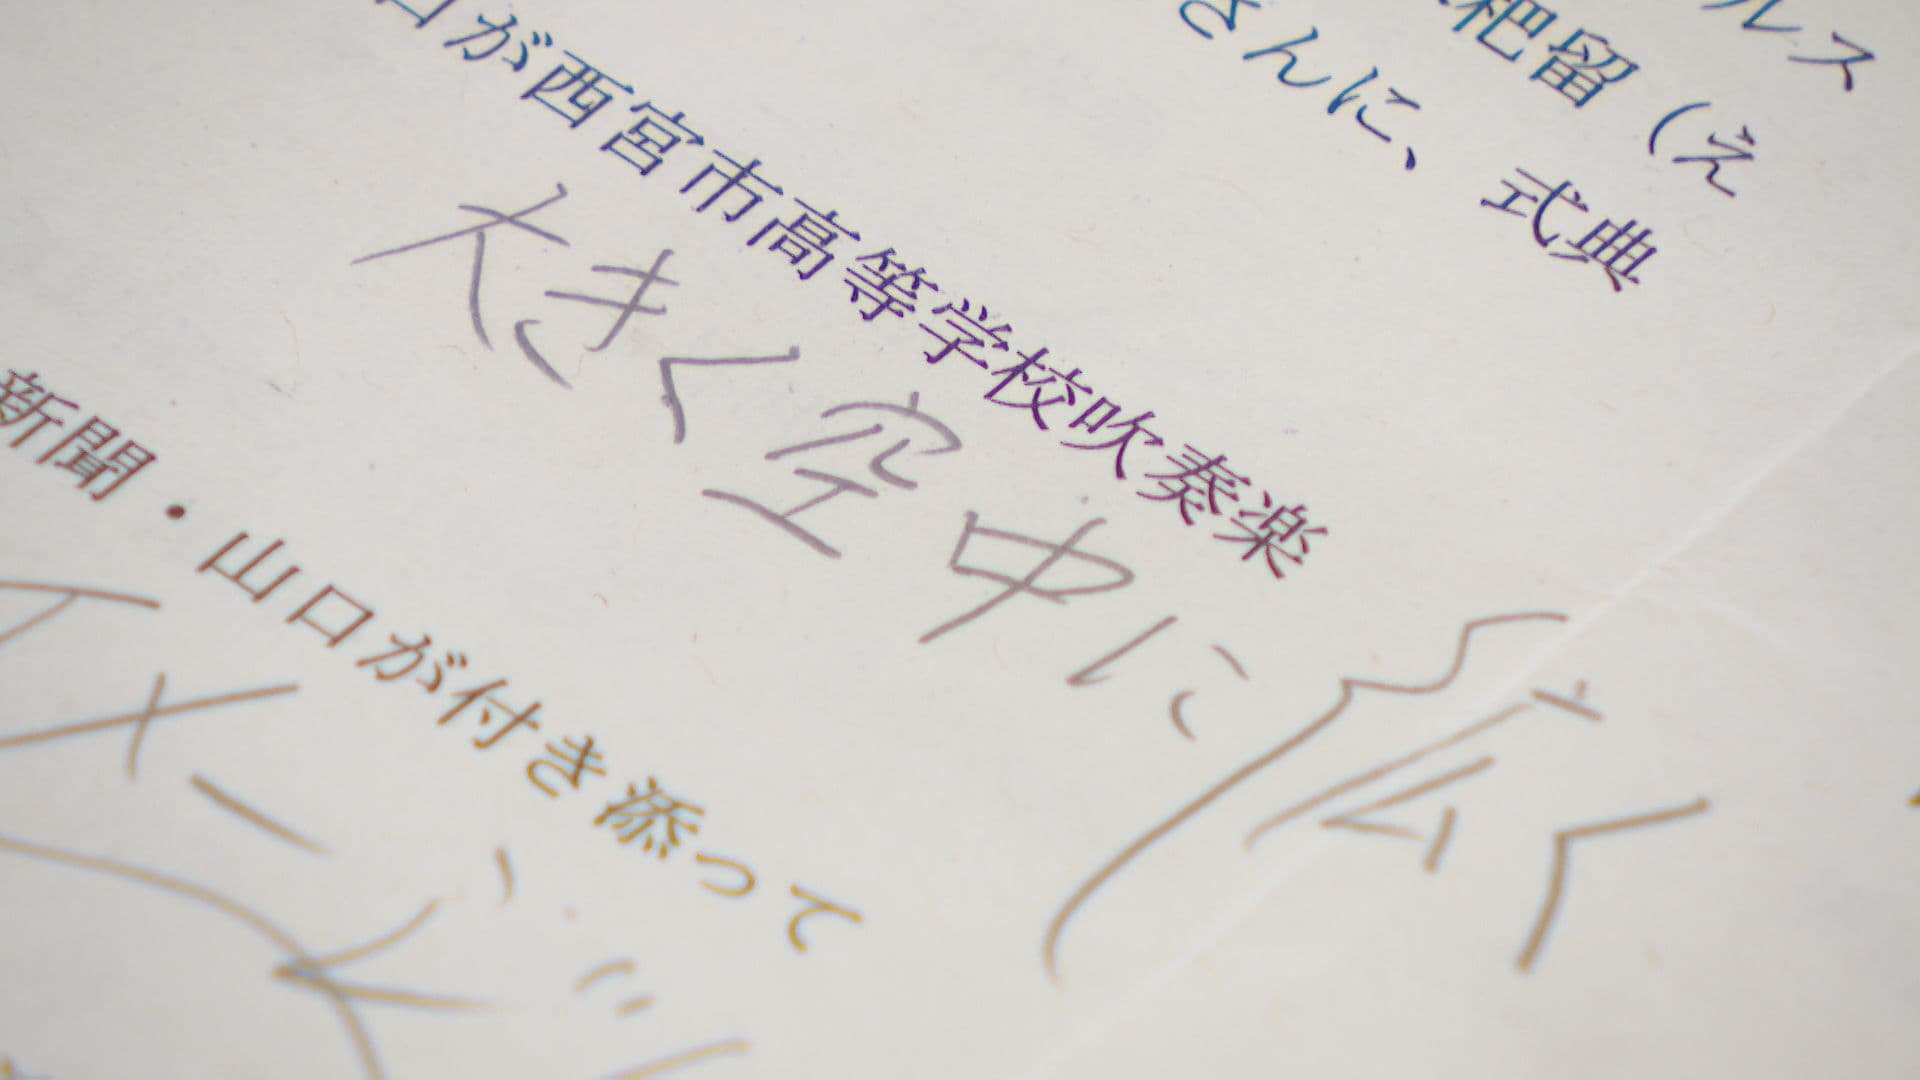 ルス
杷留（え
さんに、式典
が西宮市高等学校吹奏楽
大きく空中に広く
新聞・山口が付き添って
イメージ